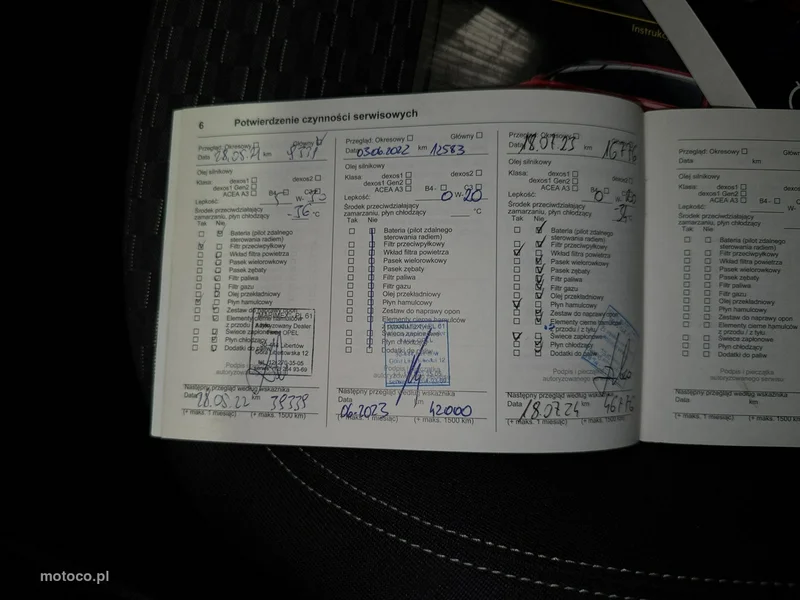 Instrukc
6 Potwierdzenie czynności serwisowych
Przegląd: Okresowy Główny
Data 28.05.21 km
Olej silnikowy
Klasa: dexos1 dexos2
dexos1 Gen2
ACEA A3
B4 - C3
Lepkość: W-
Środek przeciwdziałający
zamarzaniu, płyn chłodzący -36 °C
Tak Nie
Bateria (pilot zdalnego
sterowania radiem)
Filtr przeciwpyłkowy
Wkład filtra powietrza
Pasek wielorowkowy
Pasek zębaty
Filtr paliwa
Filtr gazu
Olej przekładniowy
Płyn hamulcowy
Zestaw do naprawy opon
Elementy cierne hamulców
z przodu / z tyłu
Świece zapłonowe
Płyn chłodzący
Dodatki do paliw
Podpis i pieczątka
autoryzowanego
Następny przegląd według wskaźnika
Data 28.05.22 km 39339
(+ maks. 1 miesiąc) (+ maks. 1500 km)
Przegląd: Okresowy Główny
Data 03.06.2022 km 12583
Olej silnikowy
Klasa: dexos1 dexos2
dexos1 Gen2
ACEA A3
B4 - C3
Lepkość: 0 W- 20
Środek przeciwdziałający
zamarzaniu, płyn chłodzący °C
Tak Nie
Bateria (pilot zdalnego
sterowania radiem)
Filtr przeciwpyłkowy
Wkład filtra powietrza
Pasek wielorowkowy
Pasek zębaty
Filtr paliwa
Filtr gazu
Olej przekładniowy
Płyn hamulcowy
Zestaw do naprawy opon
Elementy cierne hamulców
Świece zapłonowe
Płyn chłodzący
Dodatki do paliw
Podpis i pieczątka
Następny przegląd według wskaźnika
Data km
06.2023 42000
(+ maks. 1 miesiąc) (+ maks. 1500 km)
Przegląd: Okresowy Główny
Data 18.07.23 km 16776
Olej silnikowy
Klasa: dexos1 dexos2
dexos1 Gen2
ACEA A3
B4 -
Lepkość: 0 W-
Środek przeciwdziałający
zamarzaniu, płyn chłodzący °C
Tak Nie
Bateria (pilot zdalnego
sterowania radiem)
Filtr przeciwpyłkowy
Wkład filtra powietrza
Pasek wielorowkowy
Pasek zębaty
Filtr paliwa
Filtr gazu
Olej przekładniowy
Płyn hamulcowy
Zestaw do naprawy opon
Elementy cierne hamulców
z przodu / z tyłu
Świece zapłonowe
Płyn chłodzący
Dodatki do paliw
Podpis i pieczątka
autoryzowanego
Następny przegląd według wskaźnika
Data 18.07.24 km 46776
(+ maks. 1 miesiąc) (+ maks. 1500 km)
Przegląd: Okresowy
Data km
Olej silnikowy
Klasa: dexos1
dexos1 Gen2
ACEA A3
B4 -
Lepkość:
Środek przeciwdziałający
zamarzaniu, płyn chłodzący
Tak Nie
Bateria (pilot zdalnego
sterowania radiem)
Filtr przeciwpyłkowy
Wkład filtra powietrza
Pasek wielorowkowy
Pasek zębaty
Filtr paliwa
Filtr gazu
Olej przekładniowy
Płyn hamulcowy
Zestaw do naprawy opon
Elementy cierne hamulców
z przodu / z tyłu
Świece zapłonowe
Płyn chłodzący
Dodatki do paliw
Podpis i pieczątka
autoryzowanego serwisu
Następny przegląd według wskaźnika
Data km
(+ maks. 1 miesiąc) (+ maks. 1500 km)
motoco.pl